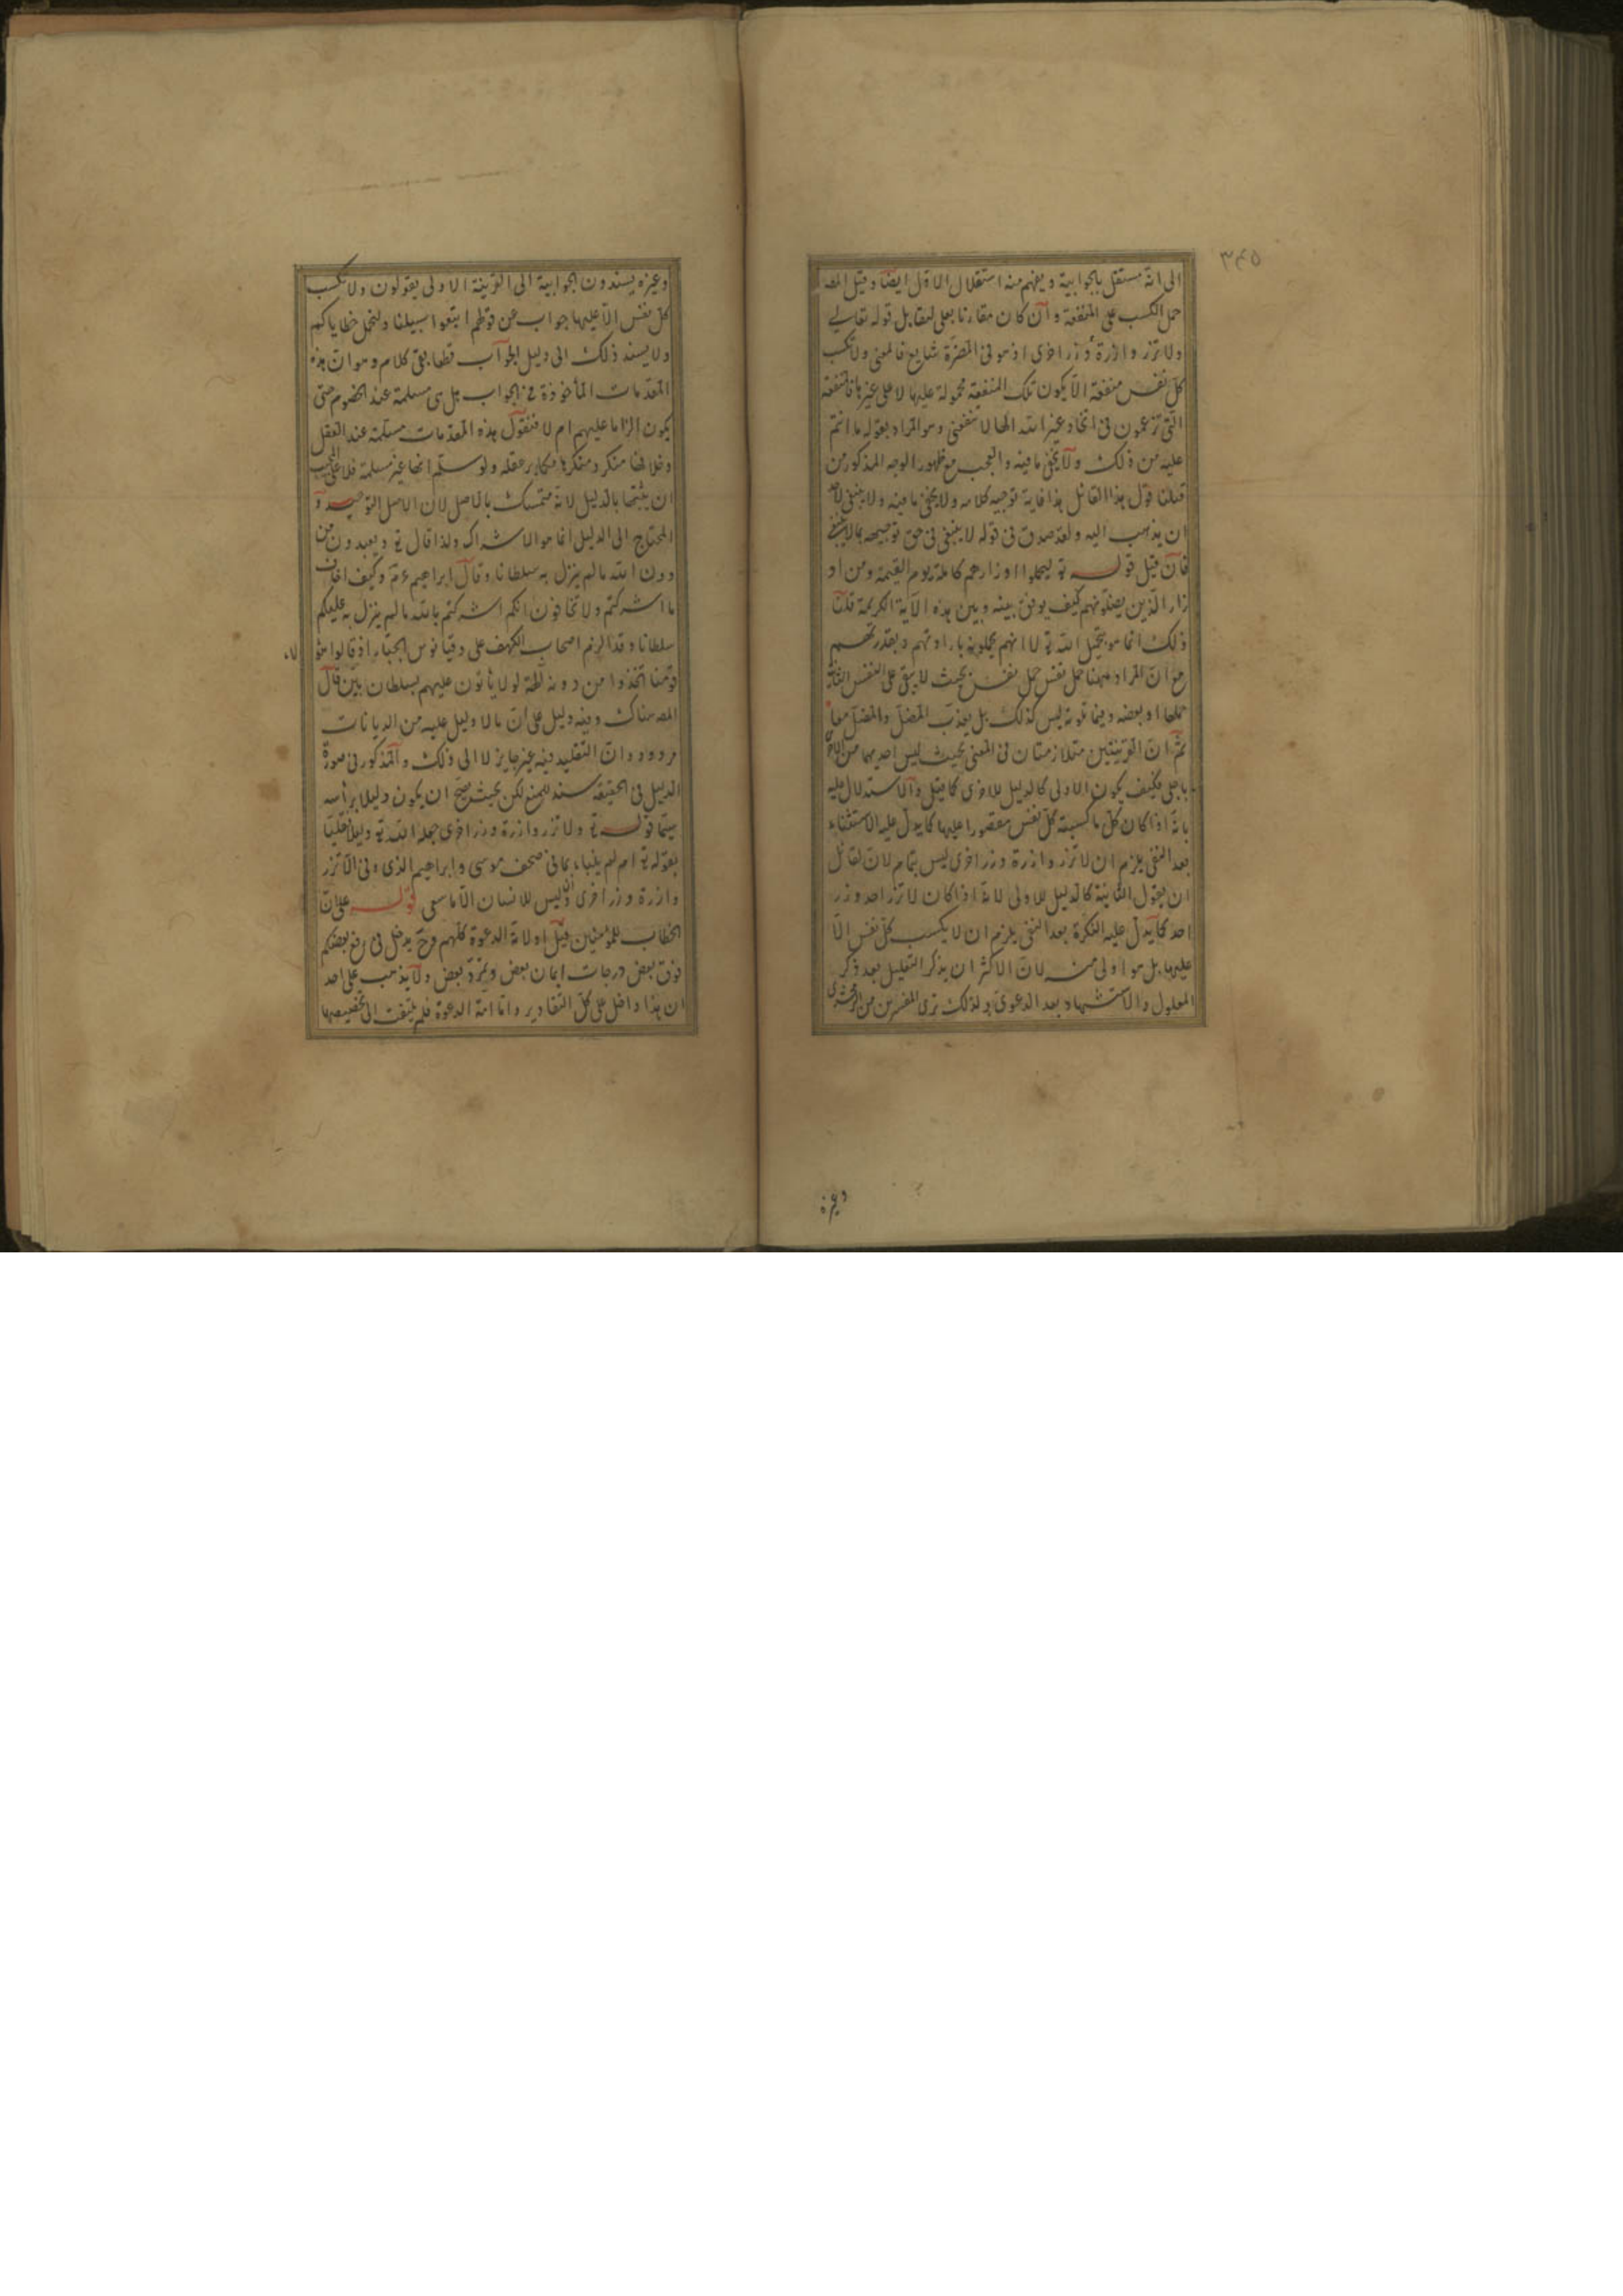 ٣٤٥
الى انه مستقل بالجوابية ويفهم منه استقلال الاول ايضا وقيل المصـ
حمل الكسب على المنفعة وان كان مقارنا بعلى لتقابل قوله تعالى
ولا تزر وازرة وزر اخرى اذ هو فى المضرة شايع فالمعنى ولا تكسب
كل نفس منفعة الا يكون تلك المنفعة محمولة عليها لا على غيرها فالمنفعة
التى تزعمون فى اتخاذ غير الله الها لا تنفعنى وهو المراد بقوله ما انتم
عليه من ذلك ولا يخفى ما فيه والعجب مع ظهور الوجه المذكور من
قبلنا قول هذا القائل هذا غاية توجيه كلامه ولا يخفى ما فيه ولا ينبغى لاحد
ان يذهب اليه ولقد صدق فى قوله لا ينبغى فى حق توجيهه بما لا ينبغى
فان قيل قوله تع ليحملوا اوزارهم كاملة يوم القيمة ومن او
زار الذين يضلونهم كيف يوفق بينه وبين هذه الآية الكريمة قلنا
ذلك انما هو بتحميل الله تع لا انهم يحملونه بارادتهم وبقدرتهم
مع ان المراد ههنا حمل نفس حمل نفس بحيث لا يبقى على النفس الثانية
حملها او بعضه وفيما تلوته ليس كذلك بل يعذب المضل والمضل معا
ثم ان القرينتين متلازمتان فى المعنى بحيث ليس احديهما من الاخرى
باجلى فكيف يكون الاولى كالدليل للاخرى كما قيل والاستدلال عليه
بانه اذا كان كل ما كسبته كل نفس مقصورا عليها كما يدل عليه الاستثناء
بعد النفى يلزم ان لا تزر وازرة وزر اخرى ليس بتمام لان لقائل
ان يقول الثانية كالدليل للاولى لانه اذا كان لا تزر احد وزر
احد كما يدل عليه النكرة بعد النفى يلزم ان لا يكسب كل نفس الا
عليها بل هو اولى منه لان الاكثر ان يذكر التعليل بعد ذكر
المعلول والاستشهاد بعد الدعوى ولذلك ترى المفسرين من الزمخشرى
وغيره
وغيره يسندون الجوابية الى القرينة الاولى يقولون ولا تكسب
كل نفس الا عليها جواب عن قولهم اتبعوا سبيلنا ولنحمل خطاياكم
ولا يسند ذلك الى دليل الجواب قطعا بقى كلام وهو ان هذه
المقدمات المأخوذة فى الجواب هل هى مسلمة عند الخصوم حتى
يكون الزاما عليهم ام لا فنقول هذه المقدمات مسلمة عند العقل
وخلافها منكر ومنكرها مكابر عقله ولو سلم انها غير مسلمة فلا على المجيب
ان يثبتها بالدليل لانه متمسك بالاصل لان الاصل التوحيد و
المحتاج الى الدليل انما هو الاشراك ولذا قال تع ويعبدون من
دون الله ما لم ينزل به سلطانا وقال ابراهيم عم وكيف اخاف
ما اشركتم ولا تخافون انكم اشركتم بالله ما لم ينزل به عليكم
سلطانا وقد الزم اصحاب الكهف على دقيانوس الجبار اذ قالوا هؤ
لاء
قومنا اتخذوا من دونه آلهة لولا يأتون عليهم بسلطان بين قال
المصـ هناك وفيه دليل على ان ما لا دليل عليه من الديانات
مردود وان التقليد فيه غير جايز لا الى ذلك والمذكور فى صورة
الدليل فى الحقيقة سند للمنع لكن بحيث صح ان يكون دليلا برأسه
سيما قوله تع ولا تزر وازرة وزر اخرى جعله الله تع دليلا نقليا
بقوله تع ام لم ينبأ بما فى صحف موسى وابراهيم الذى وفى الا تزر
وازرة وزر اخرى وان ليس للانسان الا ما سعى قوله على ان
الخطاب للمؤمنين قيل او لامة الدعوة كلهم وح يدخل فى رفع بعضكم
فوق بعض درجات ايمان بعض وتمرد بعض ولا يذهب على احد
ان هذا داخل على كل التقادير واما امة الدعوة فلم يلتفت الى تخصيصها